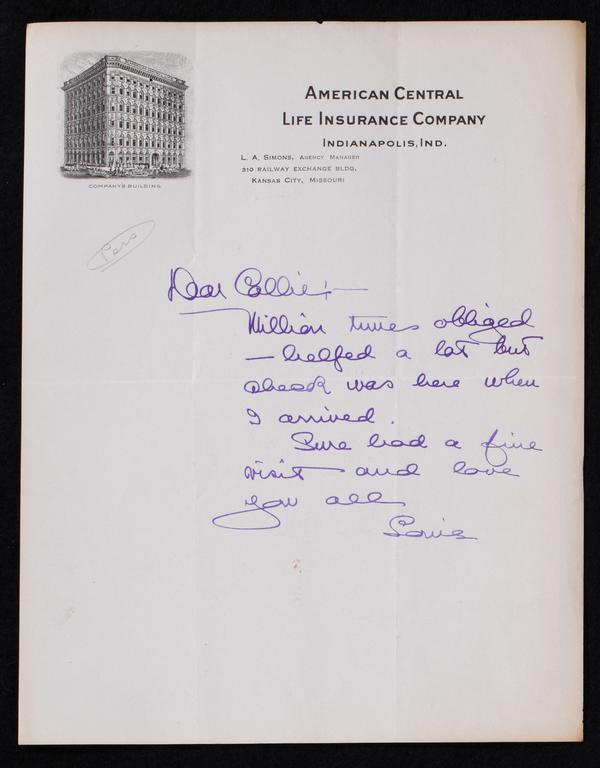 AMERICAN CENTRAL
LIFE INSURANCE COMPANY
INDIANAPOLIS, IND.
L. A. SIMONS, AGENCY MANAGER
310 RAILWAY EXCHANGE BLDG.
KANSAS CITY, MISSOURI
COMPANY'S BUILDING
Pers
Dear Collie:—
Million times obliged
— helped a lot but
check was here when
I arrived.
Sure had a fine
visit and love
you all
Louie